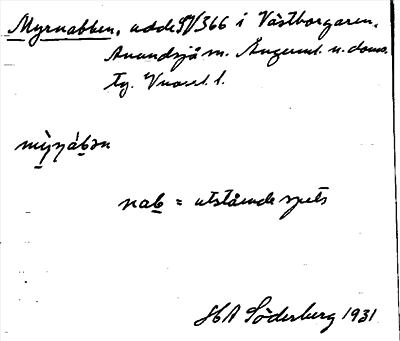 Myrnabben, udde SV366 i Västborgaren,
Anundsjö sn. Ångerml. n. doms.
tg. Vnorrl. l.
mỳɲábən
nab = utstående spets
HA Söderberg 1931